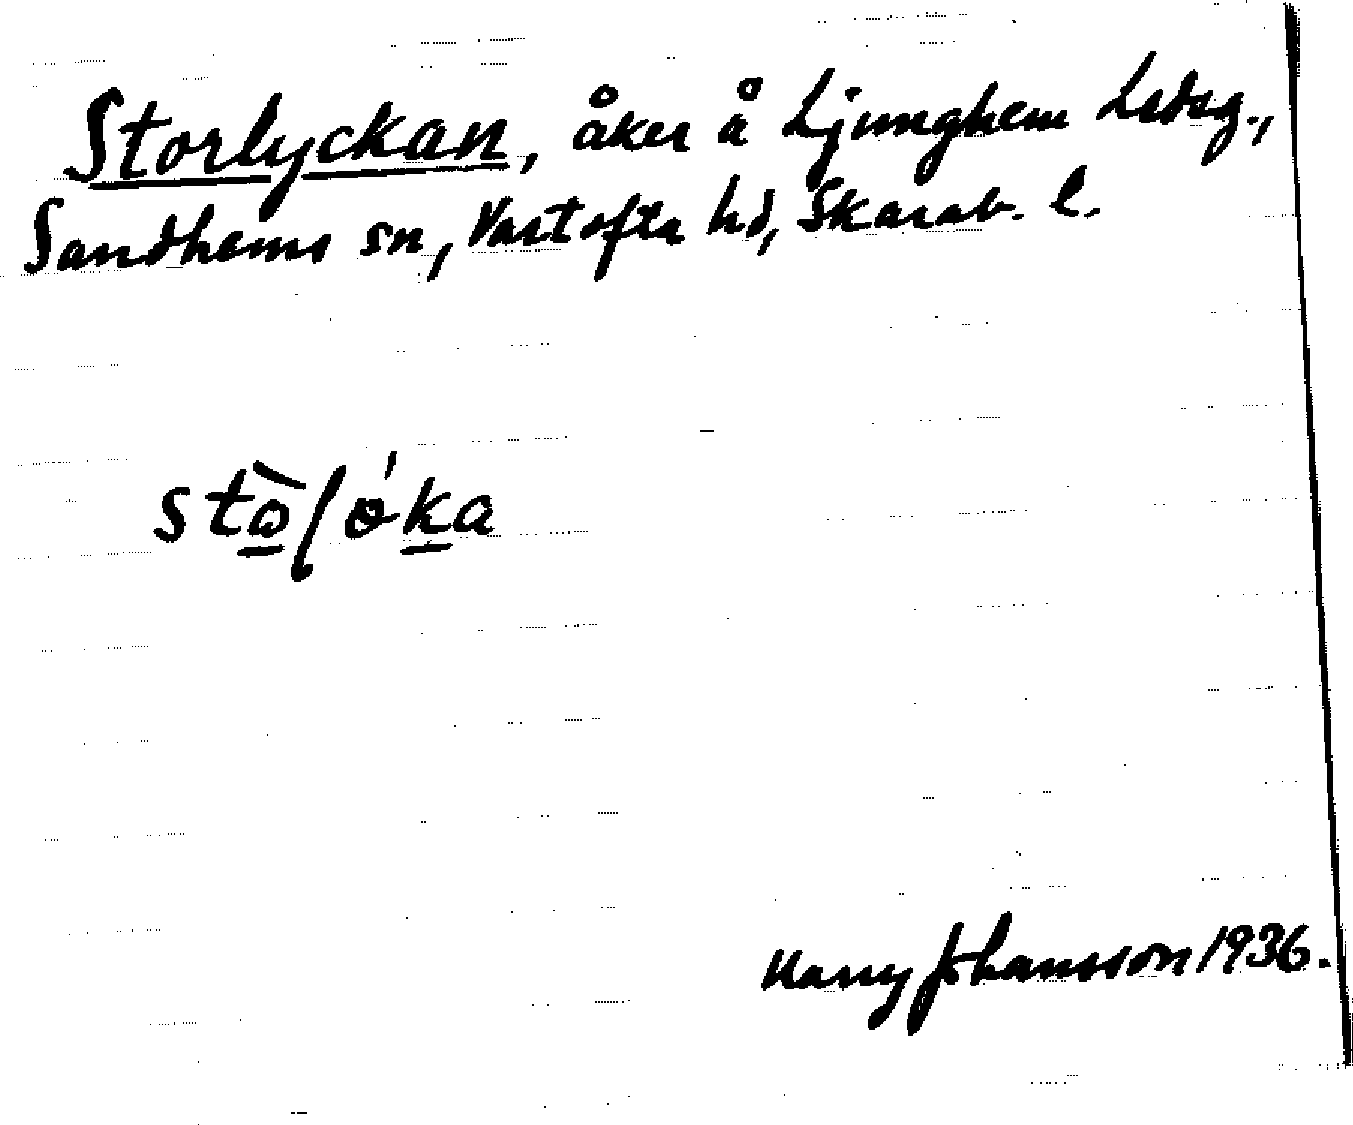 Storlyckan, åker å Ljunghem Ledsg.,
Sandhems sn, Vartofta hd, Skarab. l.
Harry Johansson 1936.